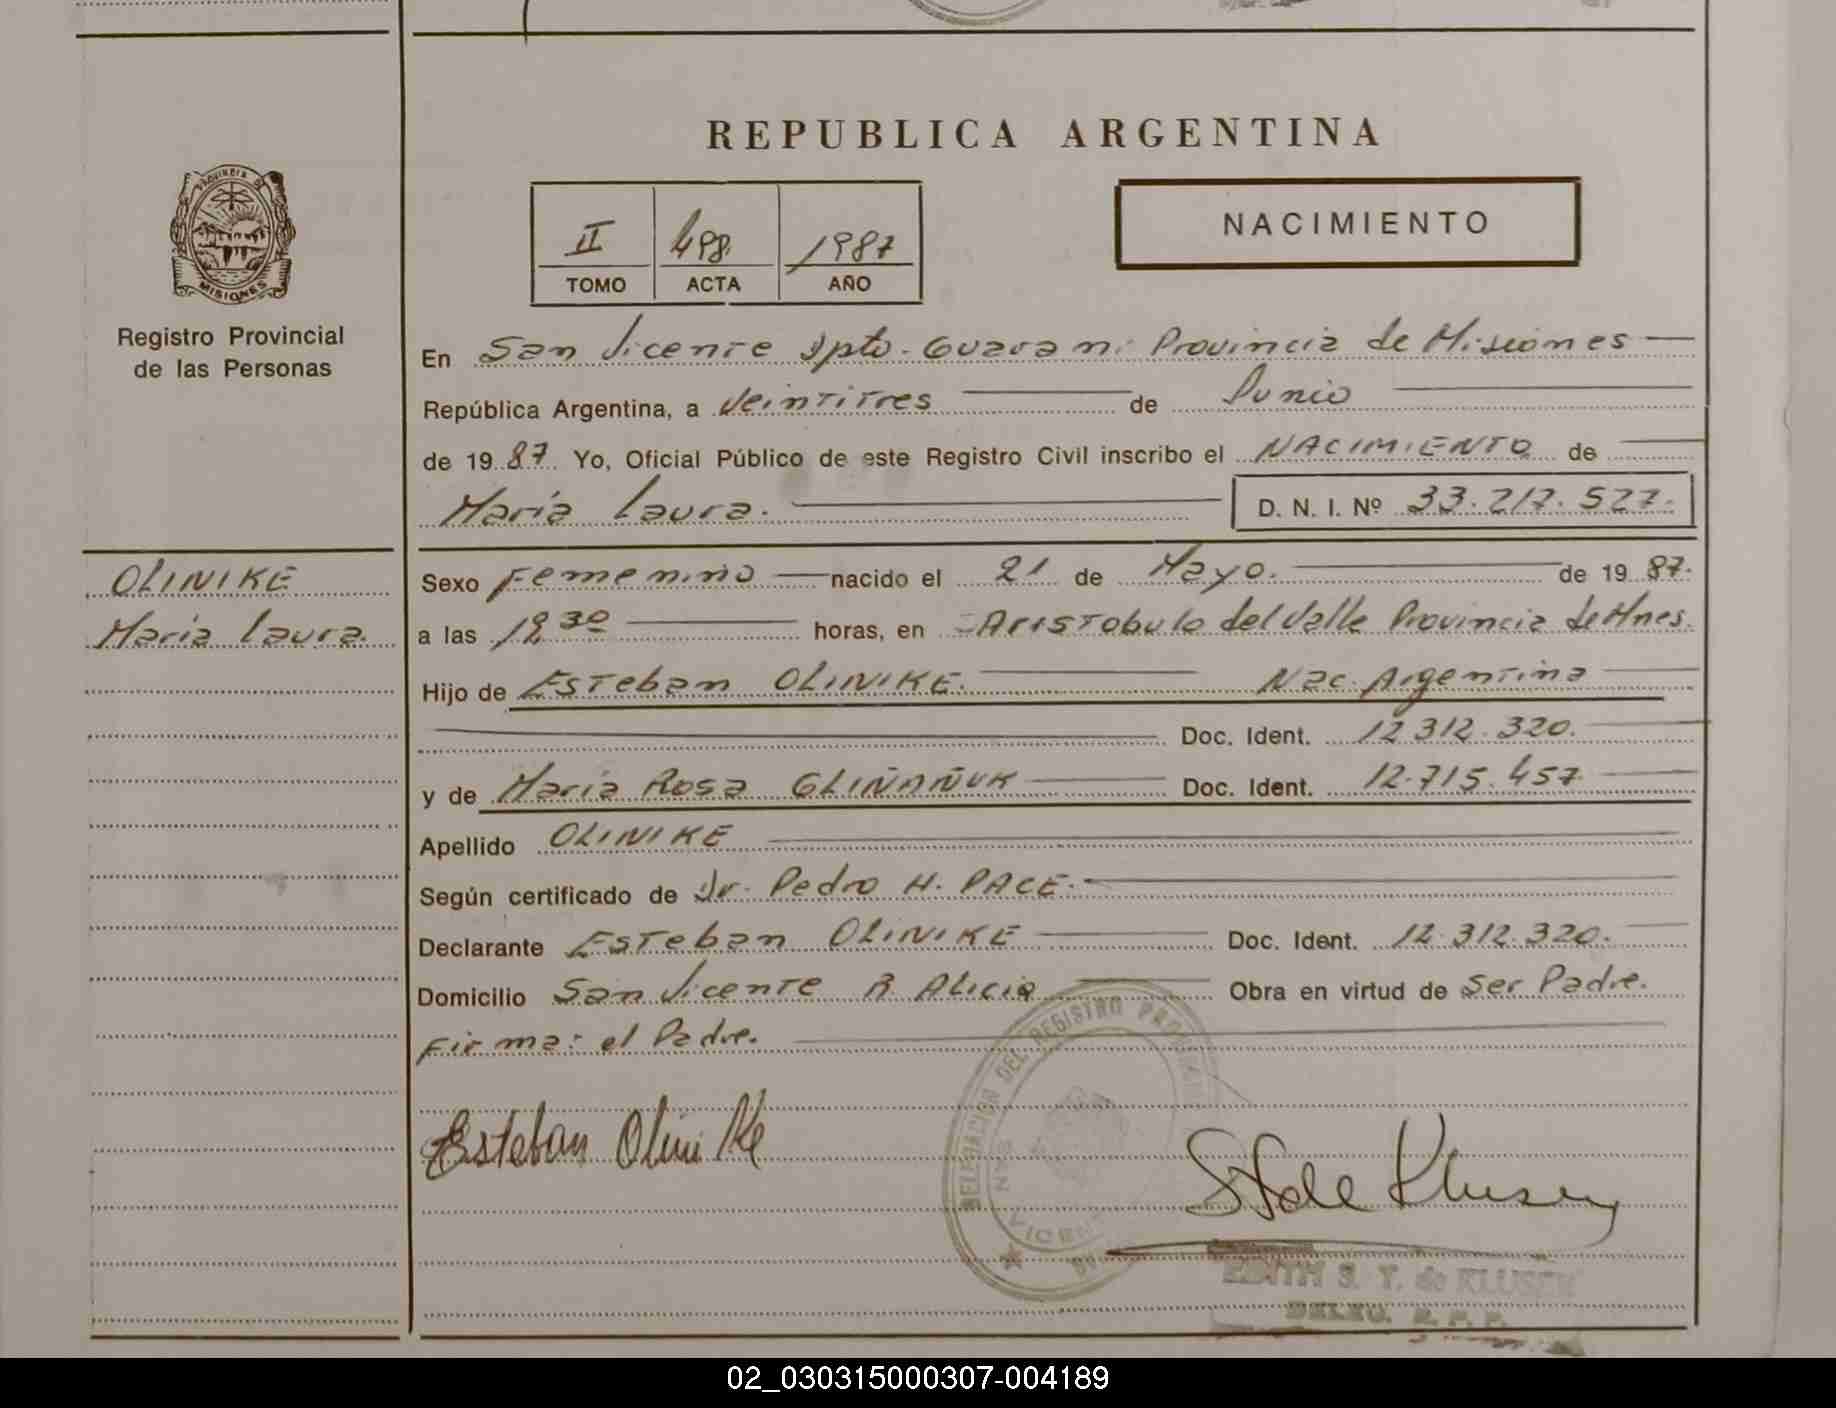 REPUBLICA ARGENTINA
PROVINCIA DE
MISIONES
Registro Provincial
de las Personas
II 498 1987
TOMO ACTA AÑO
NACIMIENTO
En San Vicente Dpto. Guarani Provincia de Misiones
República Argentina, a Veintitres de Junio
de 1987 Yo, Oficial Público de este Registro Civil inscribo el NACIMIENTO de
María Laura. D. N. I. Nº 33.217.527.
OLINIKE
María Laura.
Sexo Femenino nacido el 21 de Mayo. de 1987.
a las horas, en Aristobulo del Valle Provincia de Mnes.
Hijo de Esteban OLINIKE. Nac. Argentina
Doc. Ident. 12.312.320.
y de María Rosa GLIÑAÑUK Doc. Ident. 12.715.457
Apellido OLINIKE
Según certificado de Dr. Pedro H. PACE.
Declarante Esteban OLINIKE Doc. Ident. 12.312.320.
Domicilio San Vicente R Alicia Obra en virtud de Ser Padre.
Firma: el Padre.
Esteban Olinike
DELEGACION DEL REGISTRO
SAN VICENTE
de Klusen
EDITH S. T. de KLUSEN
DELEG. R. P. P.
02_030315000307-004189